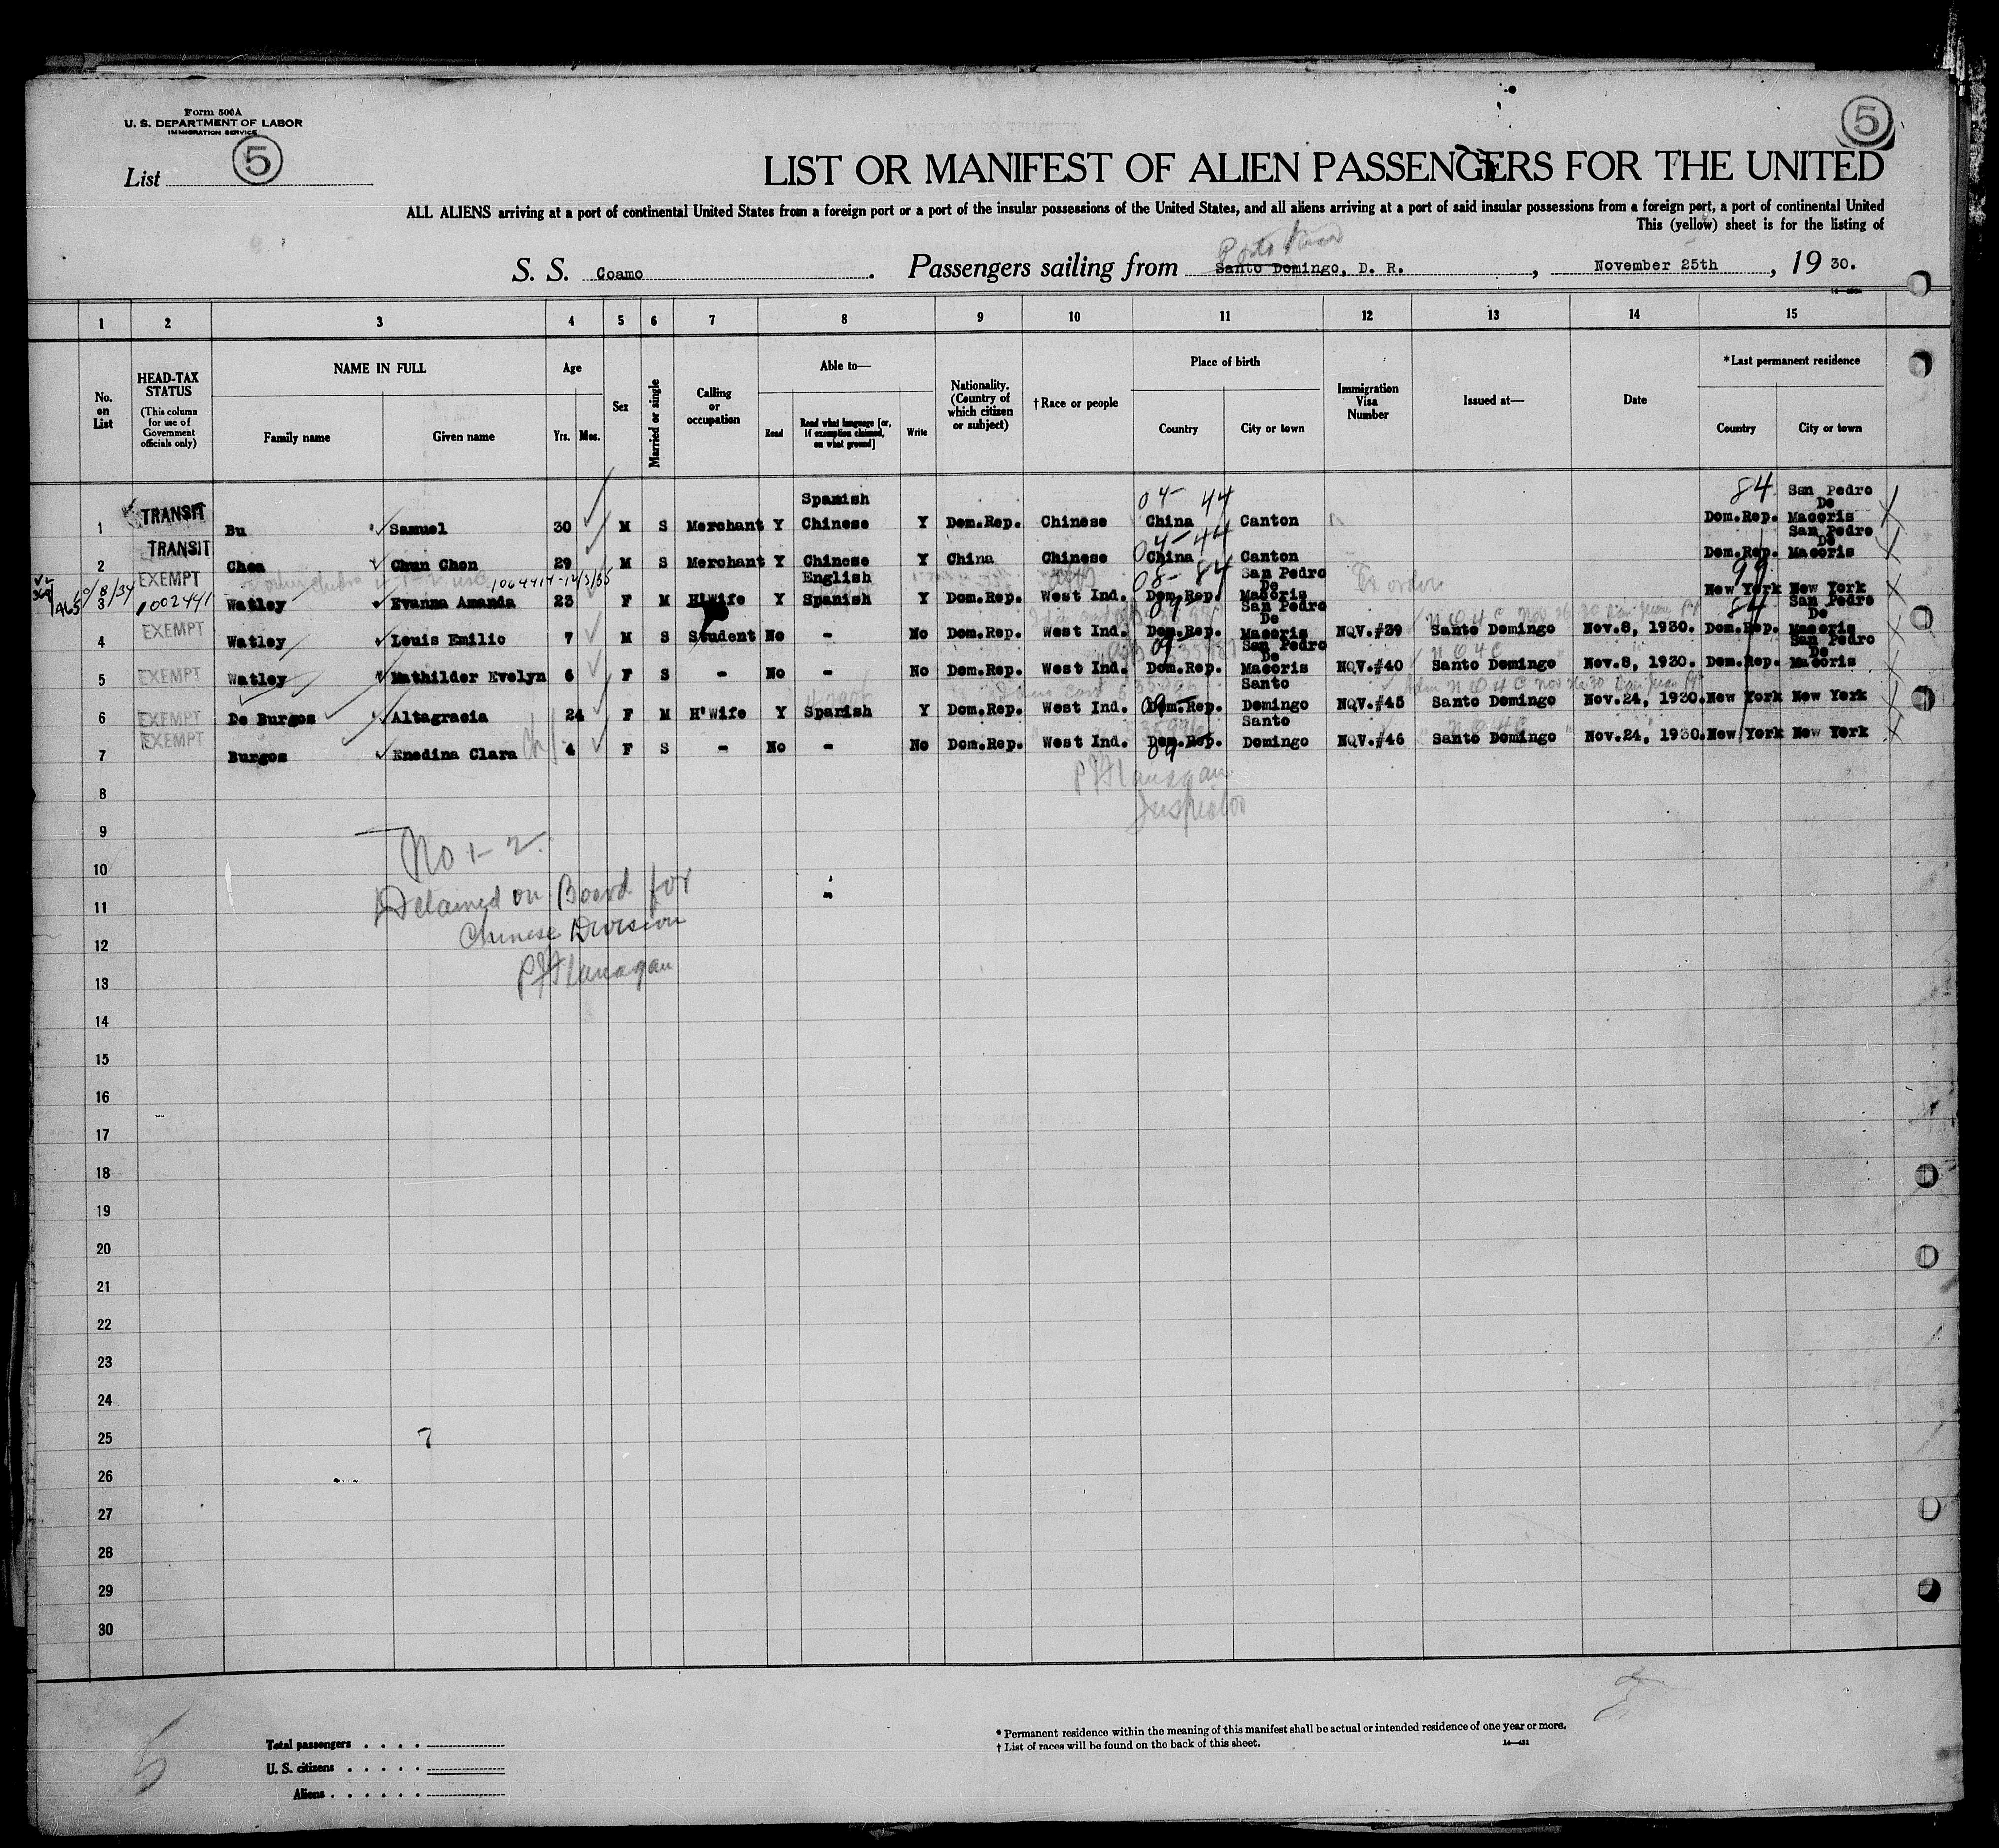 Form 500A
U. S. DEPARTMENT OF LABOR
IMMIGRATION SERVICE
List 5
5
LIST OR MANIFEST OF ALIEN PASSENGERS FOR THE UNITED
ALL ALIENS arriving at a port of continental United States from a foreign port or a port of the insular possessions of the United States, and all aliens arriving at a port of said insular possessions from a foreign port, a port of continental United
This (yellow) sheet is for the listing of
S. S. Coamo. Passengers sailing from Santo Domingo, D. R., November 25th, 19 30.
1 2 3 4 5 6 7 8 9 10 11 12 13 14 15
No. on List
HEAD-TAX STATUS (This column for use of Government officials only)
NAME IN FULL
Family name Given name
Age
Yrs. Mos.
Sex
Married or single
Calling or occupation
Able to—
Read Read what language [or, if exemption claimed, on what ground] Write
Nationality. (Country of which citizen or subject)
†Race or people
Place of birth
Country City or town
Immigration Visa Number
Issued at—
Date
*Last permanent residence
Country City or town
1 TRANSIT Bu Samuel 30 M S Merchant Y Spanish Chinese Y Dom.Rep. Chinese 04- 44 China Canton 84 Dom.Rep. San Pedro De Macoris
2 TRANSIT Chea Chun Chon 29 M S Merchant Y Chinese Y China Chinese 04-44 China Canton Dom.Rep. San Pedro De Macoris
1064414-12/3/35
3 EXEMPT 1002441 Watley Evanna Amanda 23 F M H'Wife Y English Spanish Y Dom.Rep. West Ind. 08- 84 Dom.Rep. San Pedro De Macoris 99 New York New York
4 EXEMPT Watley Louis Emilio 7 M S Student No - No Dom.Rep. West Ind. 09 Dom.Rep. San Pedro De Macoris NQV.#39 Santo Domingo Nov.8, 1930. 84 Dom.Rep. San Pedro De Macoris
5 EXEMPT Watley Mathilder Evelyn 6 F S - No - No Dom.Rep. West Ind. 09 Dom.Rep. San Pedro De Macoris NQV.#40 Santo Domingo Nov.8, 1930. Dom.Rep. San Pedro De Macoris
6 EXEMPT De Burgos Altagracia 24 F M H'Wife Y Spanish Y Dom.Rep. West Ind. Dom.Rep. Santo Domingo NQV.#45 Santo Domingo Nov.24, 1930. New York New York
7 EXEMPT Burgos Enedina Clara 4 F S - No - No Dom.Rep. West Ind. Dom.Rep. 09 Santo Domingo NQV.#46 Santo Domingo Nov.24, 1930. New York New York
8
P Flanagan
Inspector
9
No 1-2.
10
11
Detained on Board for
12
Chinese Division
13
P Flanagan
14
15
16
17
18
19
20
21
22
23
24
25 7
26
27
28
29
30
5
Total passengers . . . .
U. S. citizens . . . . .
Aliens . . . . . .
* Permanent residence within the meaning of this manifest shall be actual or intended residence of one year or more.
† List of races will be found on the back of this sheet.
14—431